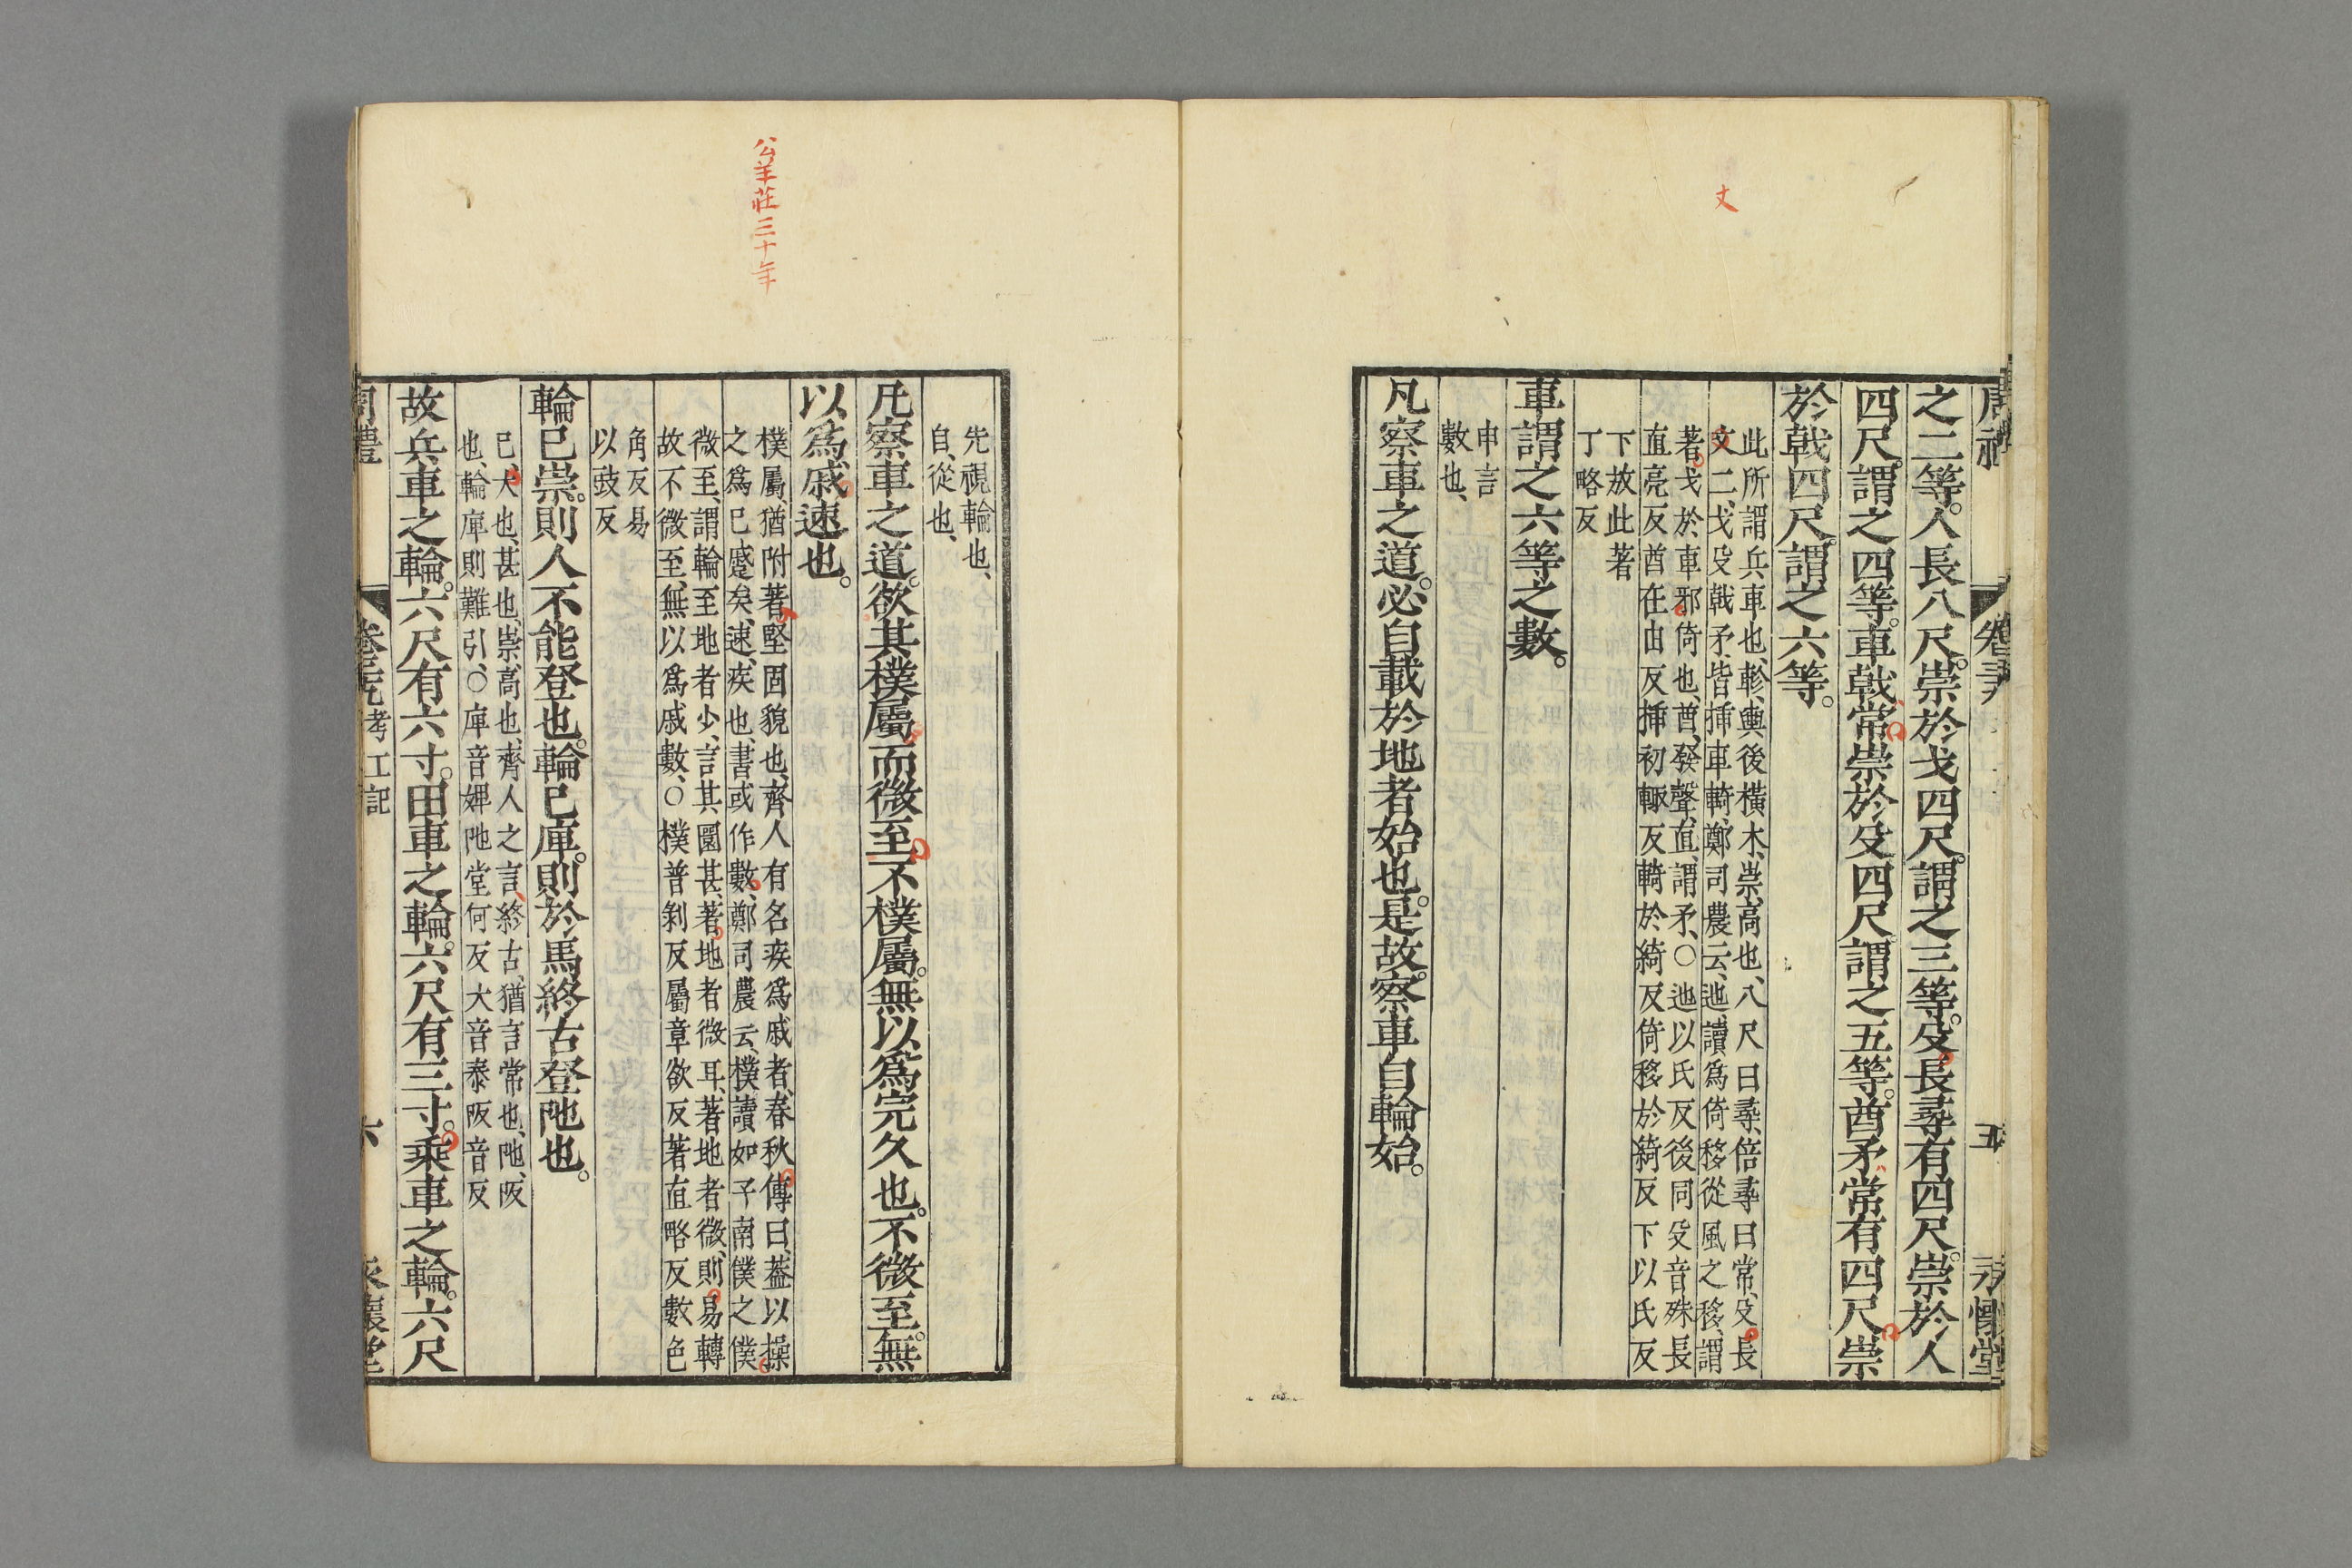 丈
之二等。人長八尺。崇於戈四尺。謂之三等。殳長尋有四尺。崇於人
四尺。謂之四等。車戟常崇於殳四尺。謂之五等。酋矛常有四尺崇
於戟四尺。謂之六等。
此所謂兵車也、軫、輿後橫木、崇、高也、八尺曰尋、倍尋曰常、殳長
文二、戈殳戟矛、皆揷車輢、鄭司農云、迆、讀爲倚移從風之移、謂
著戈於車邪倚也、酋、發聲、直、謂矛、○迆以氏反後同殳音殊長
直亮反酋在由反揷初輒反輢於綺反倚移於綺反下以氏反
下放此著
丁略反
車謂之六等之數。
申言
數也、
凡察車之道。必自載於地者始也。是故。察車自輪始。
公羊莊三十年
先視輪也、
自、從也、
凡察車之道。欲其樸屬而微至。不樸屬。無以爲完久也。不微至。無
以爲戚速也。
樸屬、猶附著堅固貌也、齊人有名疾爲戚者、春秋傳曰、葢以操
之爲已蹙矣、速、疾也、書或作數、鄭司農云、樸讀如子南僕之僕
微至、謂輪至地者少、言其圜甚、著地者微耳、著地者微、則易轉
故不微至、無以爲戚數、○樸普剝反屬章欲反著直略反數色
角反易
以豉反
輪已崇。則人不能登也。輪已庳。則於馬終古登阤也。
已、大也、甚也、崇、高也、齊人之言、終古、猶言常也、阤、阪
也、輪庳則難引、○庳音婢阤堂何反大音泰阪音反
故兵車之輪。六尺有六寸。田車之輪。六尺有三寸。乘車之輪。六尺
考工記
六